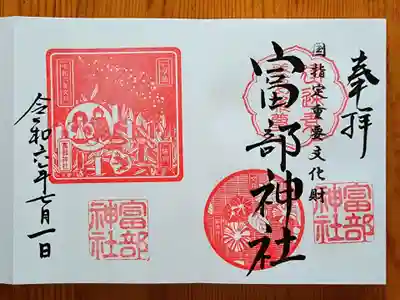 奉拝
国指定重要文化財
富部神社
富部
神社
令和六年七月一日
富部
神社